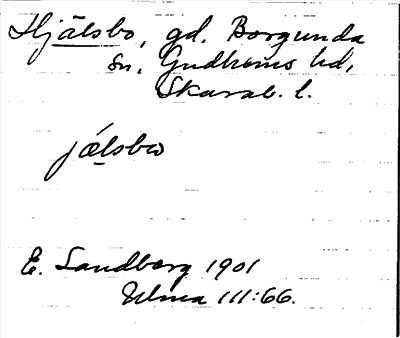 Hjälsbo, gd. Borgunda
sn, Gudhems hd,
Skarab. l.
jælsbω
E. Sandberg 1901
Ulma 111:66.